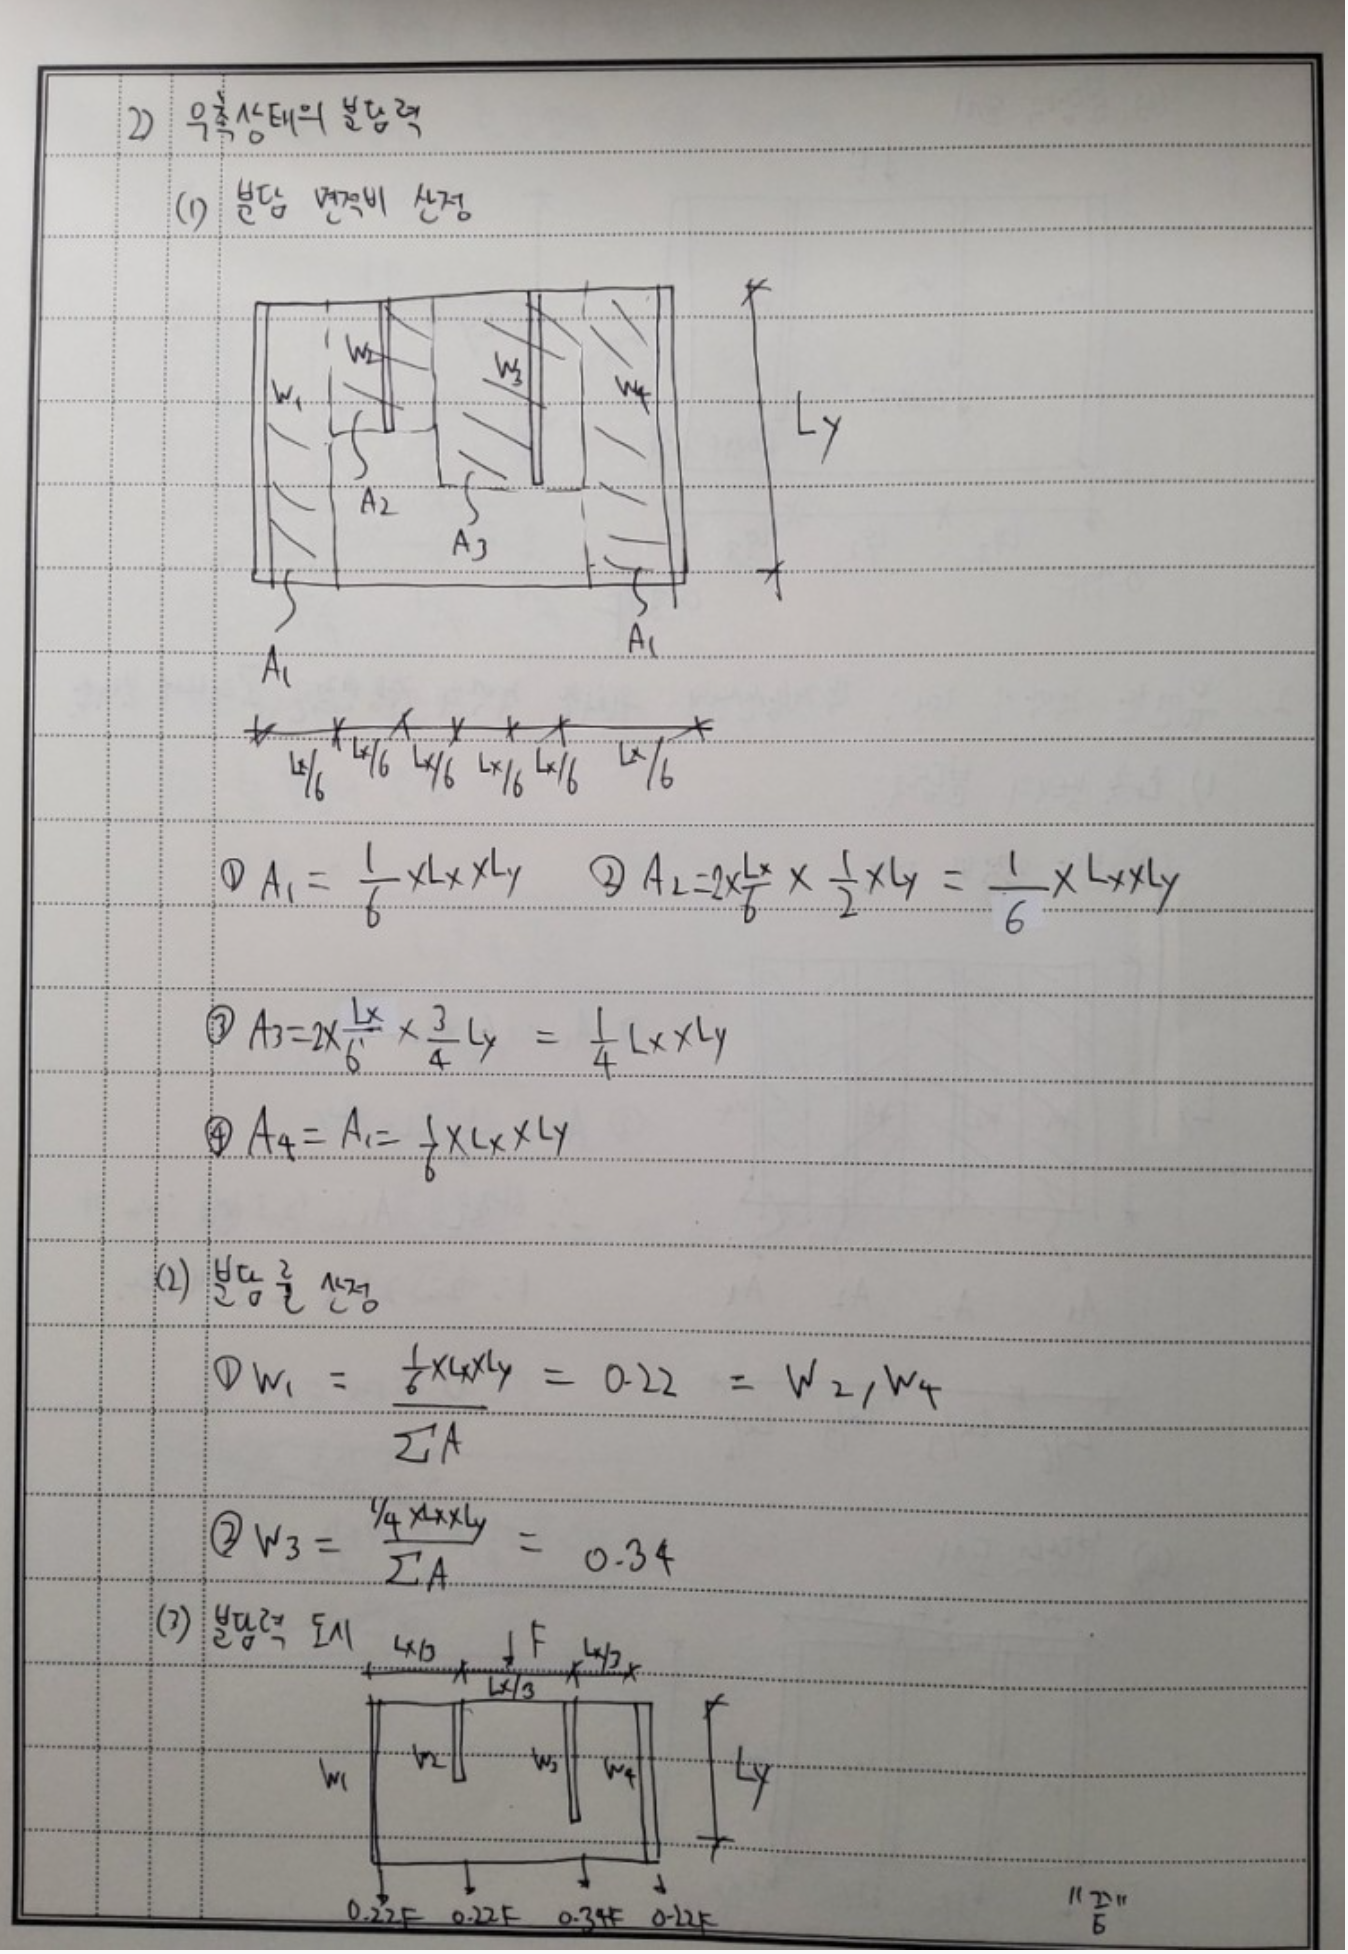 2) 우측상태의 분담력
(1) 분담 면적비 산정
W1 W2 W3 W4
Ly
A2
A3
A1 A1
Lx/6 Lx/6 Lx/6 Lx/6 Lx/6 Lx/6
① A1 = 1/6 × Lx × Ly ② A2 = 2× Lx/6 × 1/2 × Ly = 1/6 × Lx × Ly
③ A3 = 2× Lx/6 × 3/4 Ly = 1/4 Lx × Ly
④ A4 = A1 = 1/6 × Lx × Ly
(2) 분담률 산정
① W1 = 1/6 × Lx × Ly / ΣA = 0.22 = W2, W4
② W3 = 1/4 × Lx × Ly / ΣA = 0.34
(3) 분담력 도시
Lx/3 F Lx/3
Lx/3
W1 W2 W3 W4 Ly
0.22F 0.22F 0.34F 0.22F
"끝"